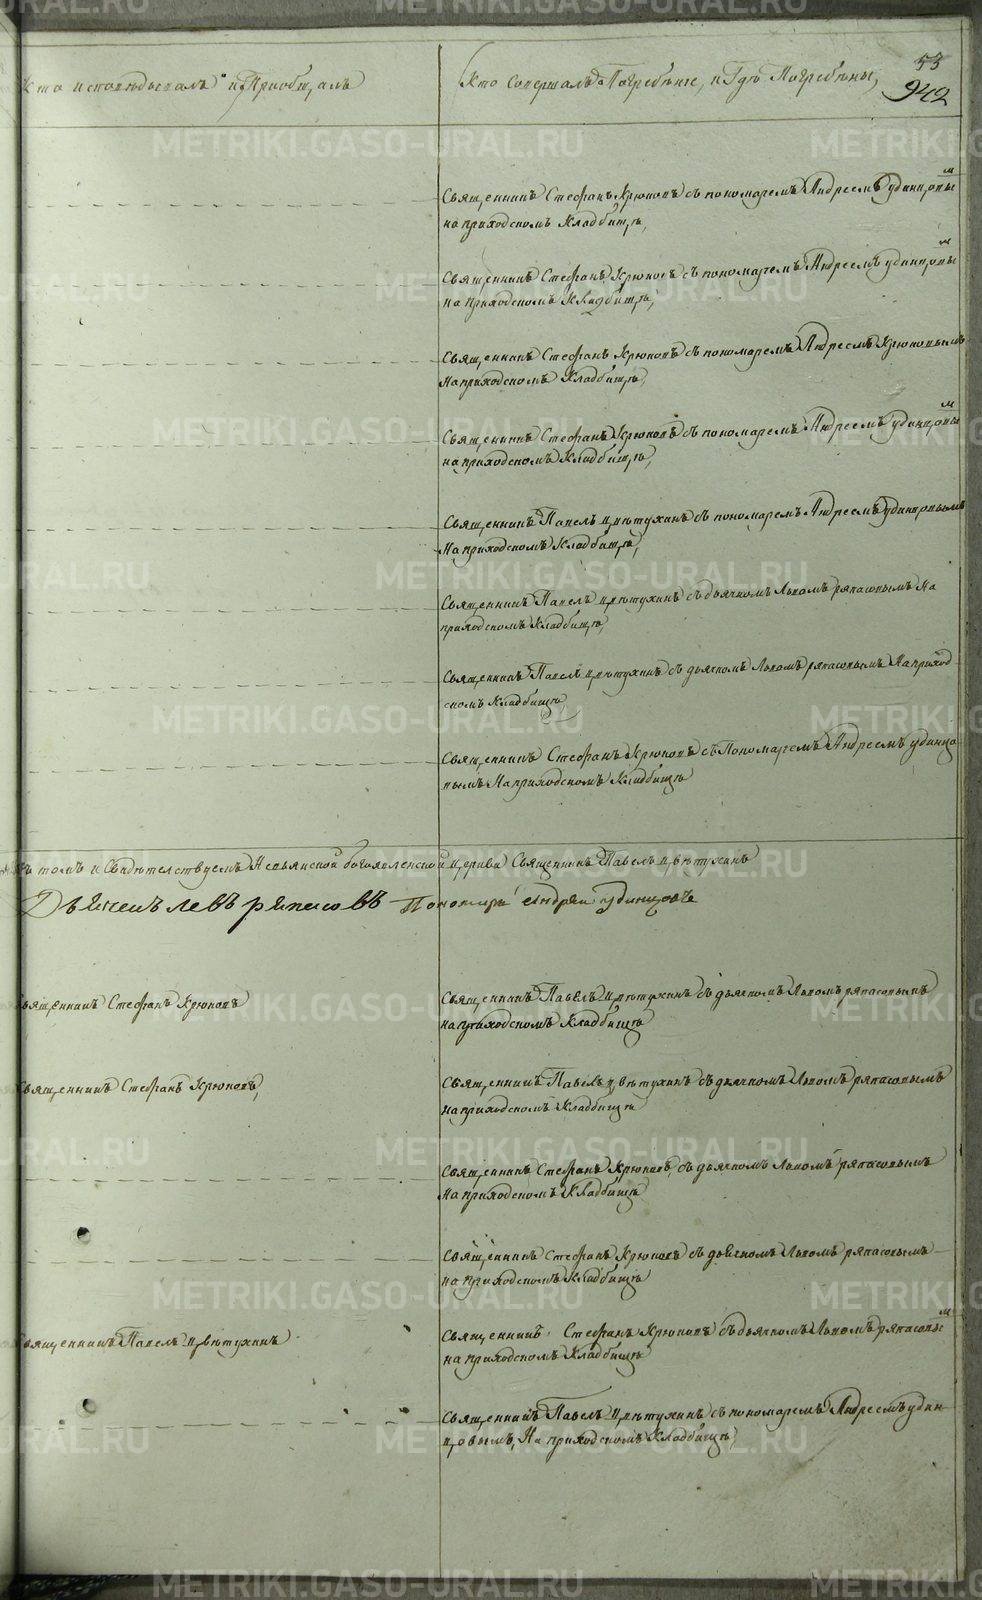 53
942
Кто исповѣдывалъ и Приобщалъ
Кто Совершалъ Погребѣние, и Гдѣ Погребѣны,
Священникъ Стефанъ Крюковъ съ пономаремъ Андреемъ Удинцовым
на приходскомъ Кладбищѣ,
Священникъ Стефанъ Крюковъ съ пономаремъ Андреемъ Удинцовым
на приходскомъ Кладбищѣ,
Священникъ Стефанъ Крюковъ съ пономаремъ Андреемъ Крюковымъ
На приходскомъ Кладбищѣ,
Священникъ Стефанъ Крюковъ съ пономаремъ Андреемъ Удинцовым
на приходскомъ Кладбищѣ,
Священникъ Павелъ Цвѣтухинъ съ пономаремъ Андреемъ Удинцовымъ
На приходскомъ Кладбищѣ,
Священникъ Павелъ Цвѣтухинъ съ дьячкомъ Львомъ ряпасовымъ На
приходскомъ Кладбищѣ,
Священникъ Павелъ Цвѣтухинъ съ дьячкомъ Львомъ ряпасовымъ На приход
скомъ Кладбищѣ,
Священникъ Стефанъ Крюковъ съ Пономаремъ Андреемъ Удинцо
вымъ На приходскомъ Кладбищѣ
томъ и Свидѣтелствуемъ Невьянской богоявленской Церкви Священникъ Павелъ Цвѣтухинъ
Дьячекъ левъ ряпасовъ Пономарь андрей удинцовъ
Священникъ Стефанъ Крюковъ
Священникъ Павелъ Цвѣтухинъ съ дьячкомъ Львомъ ряпасовымъ
на приходскомъ Кладбищѣ
Священникъ Стефанъ Крюковъ,
Священникъ Павелъ Цвѣтухинъ съ дьячкомъ Львомъ ряпасовымъ
на приходскомъ Кладбищѣ
Священникъ Стефанъ Крюковъ съ дьячкомъ Львомъ ряпасовымъ
На приходскомъ Кладбищѣ
Священникъ Стефанъ Крюковъ съ дьячкомъ Львомъ ряпасовымъ
на приходскомъ Кладбищѣ
Священникъ Павелъ Цвѣтухинъ
Священникъ Стефанъ Крюковъ съ дьячкомъ Львомъ ряпасовым
на приходскомъ Кладбищѣ
Священникъ Павелъ Цвѣтухинъ съ пономаремъ Андреемъ Удин
цовымъ, На приходскомъ Кладбищѣ,
METRIKI.GASO-URAL.RU